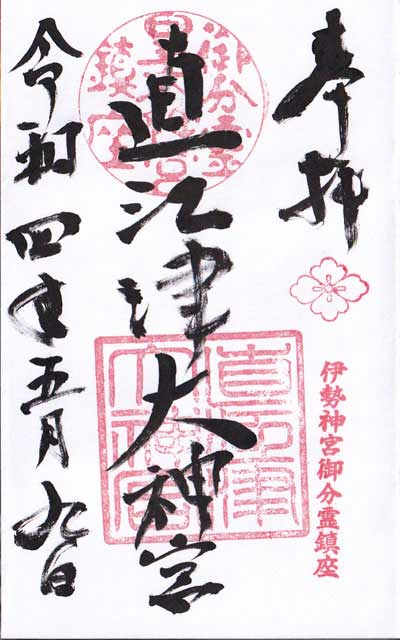 奉拝
伊勢神宮御分霊鎮座
直江津大神宮
令和四年五月九日
直江津
大神宮